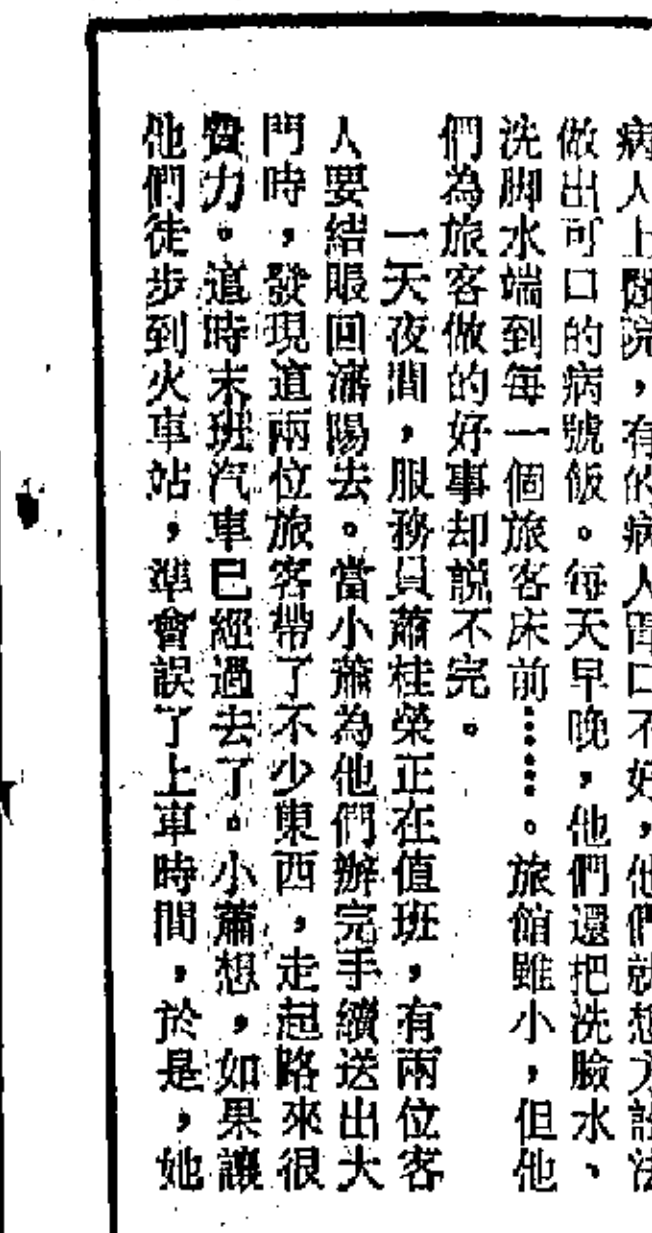 病人上醫院，有的病人胃口不好，他們就想方設法
做出可口的病號飯。每天早晚，他們還把洗臉水、
洗脚水端到每一個旅客床前……。旅館雖小，但他
們為旅客做的好事却説不完。
一天夜間，服務員蕭桂榮正在值班，有兩位客
人要結賬回瀋陽去。當小蕭為他們辦完手續送出大
門時，發現這兩位旅客帶了不少東西，走起路來很
費力。這時末班汽車已經過去了。小蕭想，如果讓
他們徒步到火車站，準會誤了上車時間，於是，她